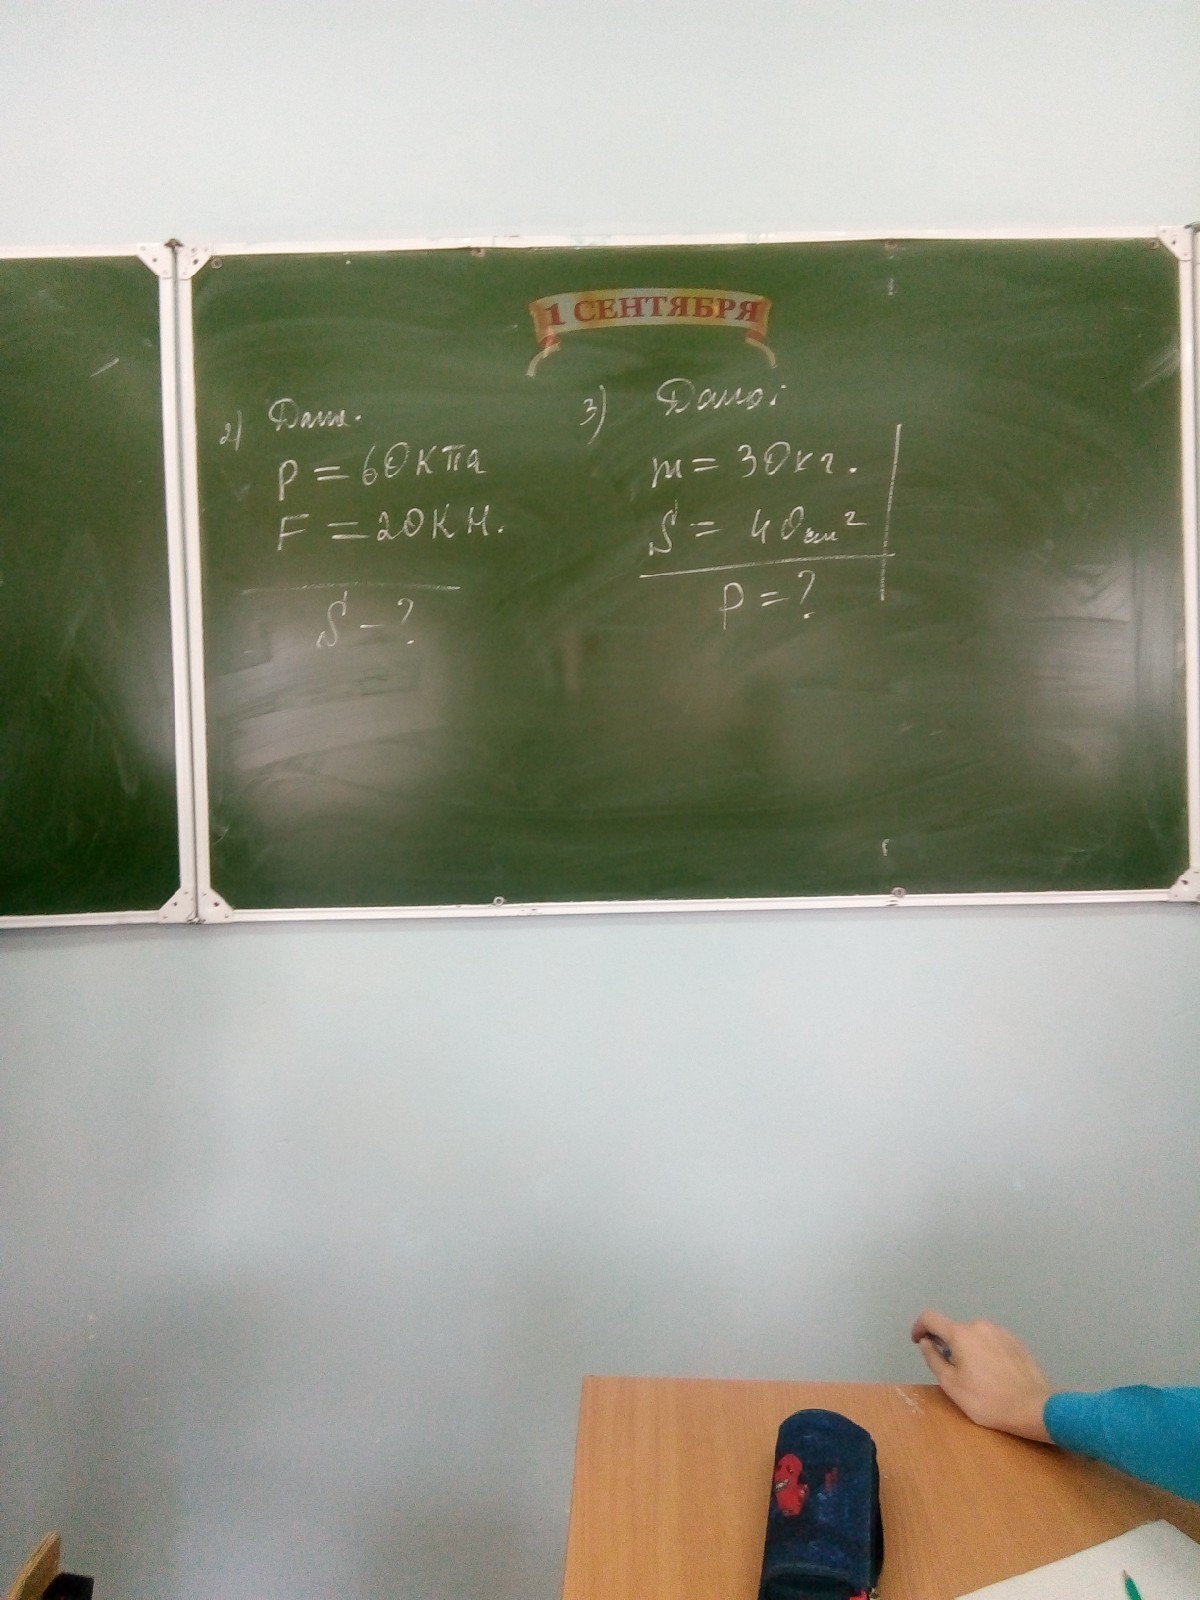 1 СЕНТЯБРЯ
2) Дано.
P = 60 кПа
F = 20 КН.
S - ?
3) Дано:
m = 30 кг.
S = 40 см²
P = ?